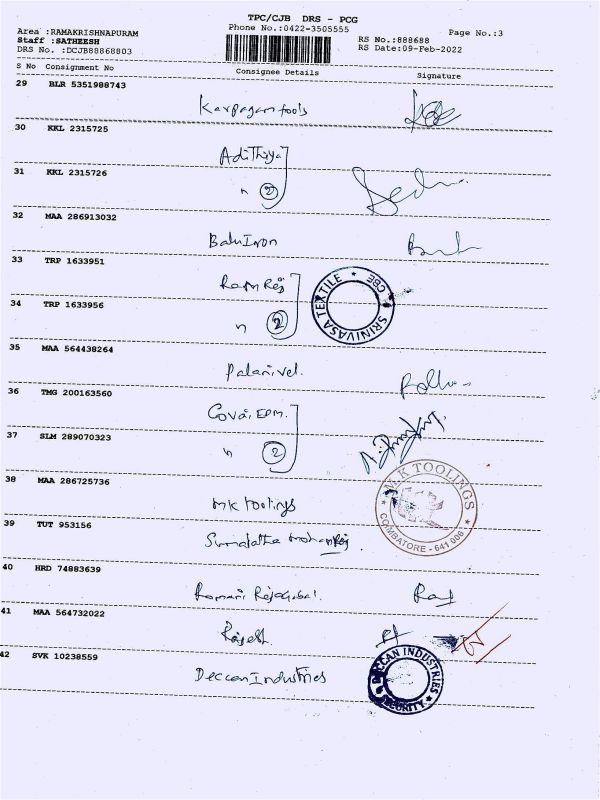 TPC/CJB DRS - PCG
Area :RAMAKRISHNAPURAM
Phone No.:0422-3505555
Page No.:3
Staff :SATHEESH
RS No.:888688
DRS No. :DCJB88868803
RS Date:09-Feb-2022
S No Consignment No Consignee Details Signature
29 BLR 5351988743
Karpagam tools
30 KKL 2315725
Adithiya
31 KKL 2315726
n 2
32 MAA 286913032
Balu Iron
33 TRP 1633951
Ram Raj
SRINIVASA TEXTILE * CBE *
34 TRP 1633956
n 2
35 MAA 564438264
Palanivel.
36 TMG 200163560
Covai EDM.
37 SLM 289070323
n 2
38 MAA 286725736
M.K TOOLINGS
COIMBATORE - 641 006
MK toolings
39 TUT 953156
40 HRD 74883639
Ramani
41 MAA 564732022
Rajesh
42 SVK 10238559
Deccan Industries
DECCAN INDUSTRIES
SECURITY